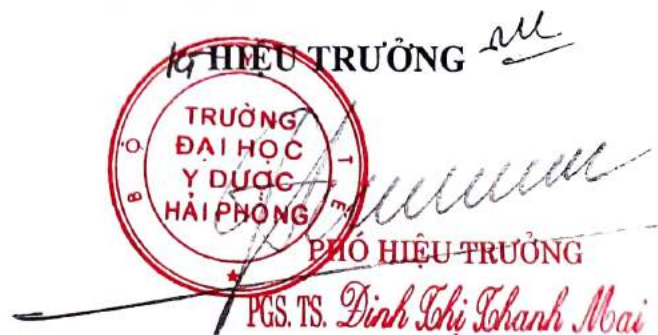 KT HIỆU TRƯỞNG
BỘ Y TẾ
TRƯỜNG
ĐẠI HỌC
Y DƯỢC
HẢI PHÒNG
PHÓ HIỆU TRƯỞNG
PGS. TS. Đinh Thị Thanh Mai